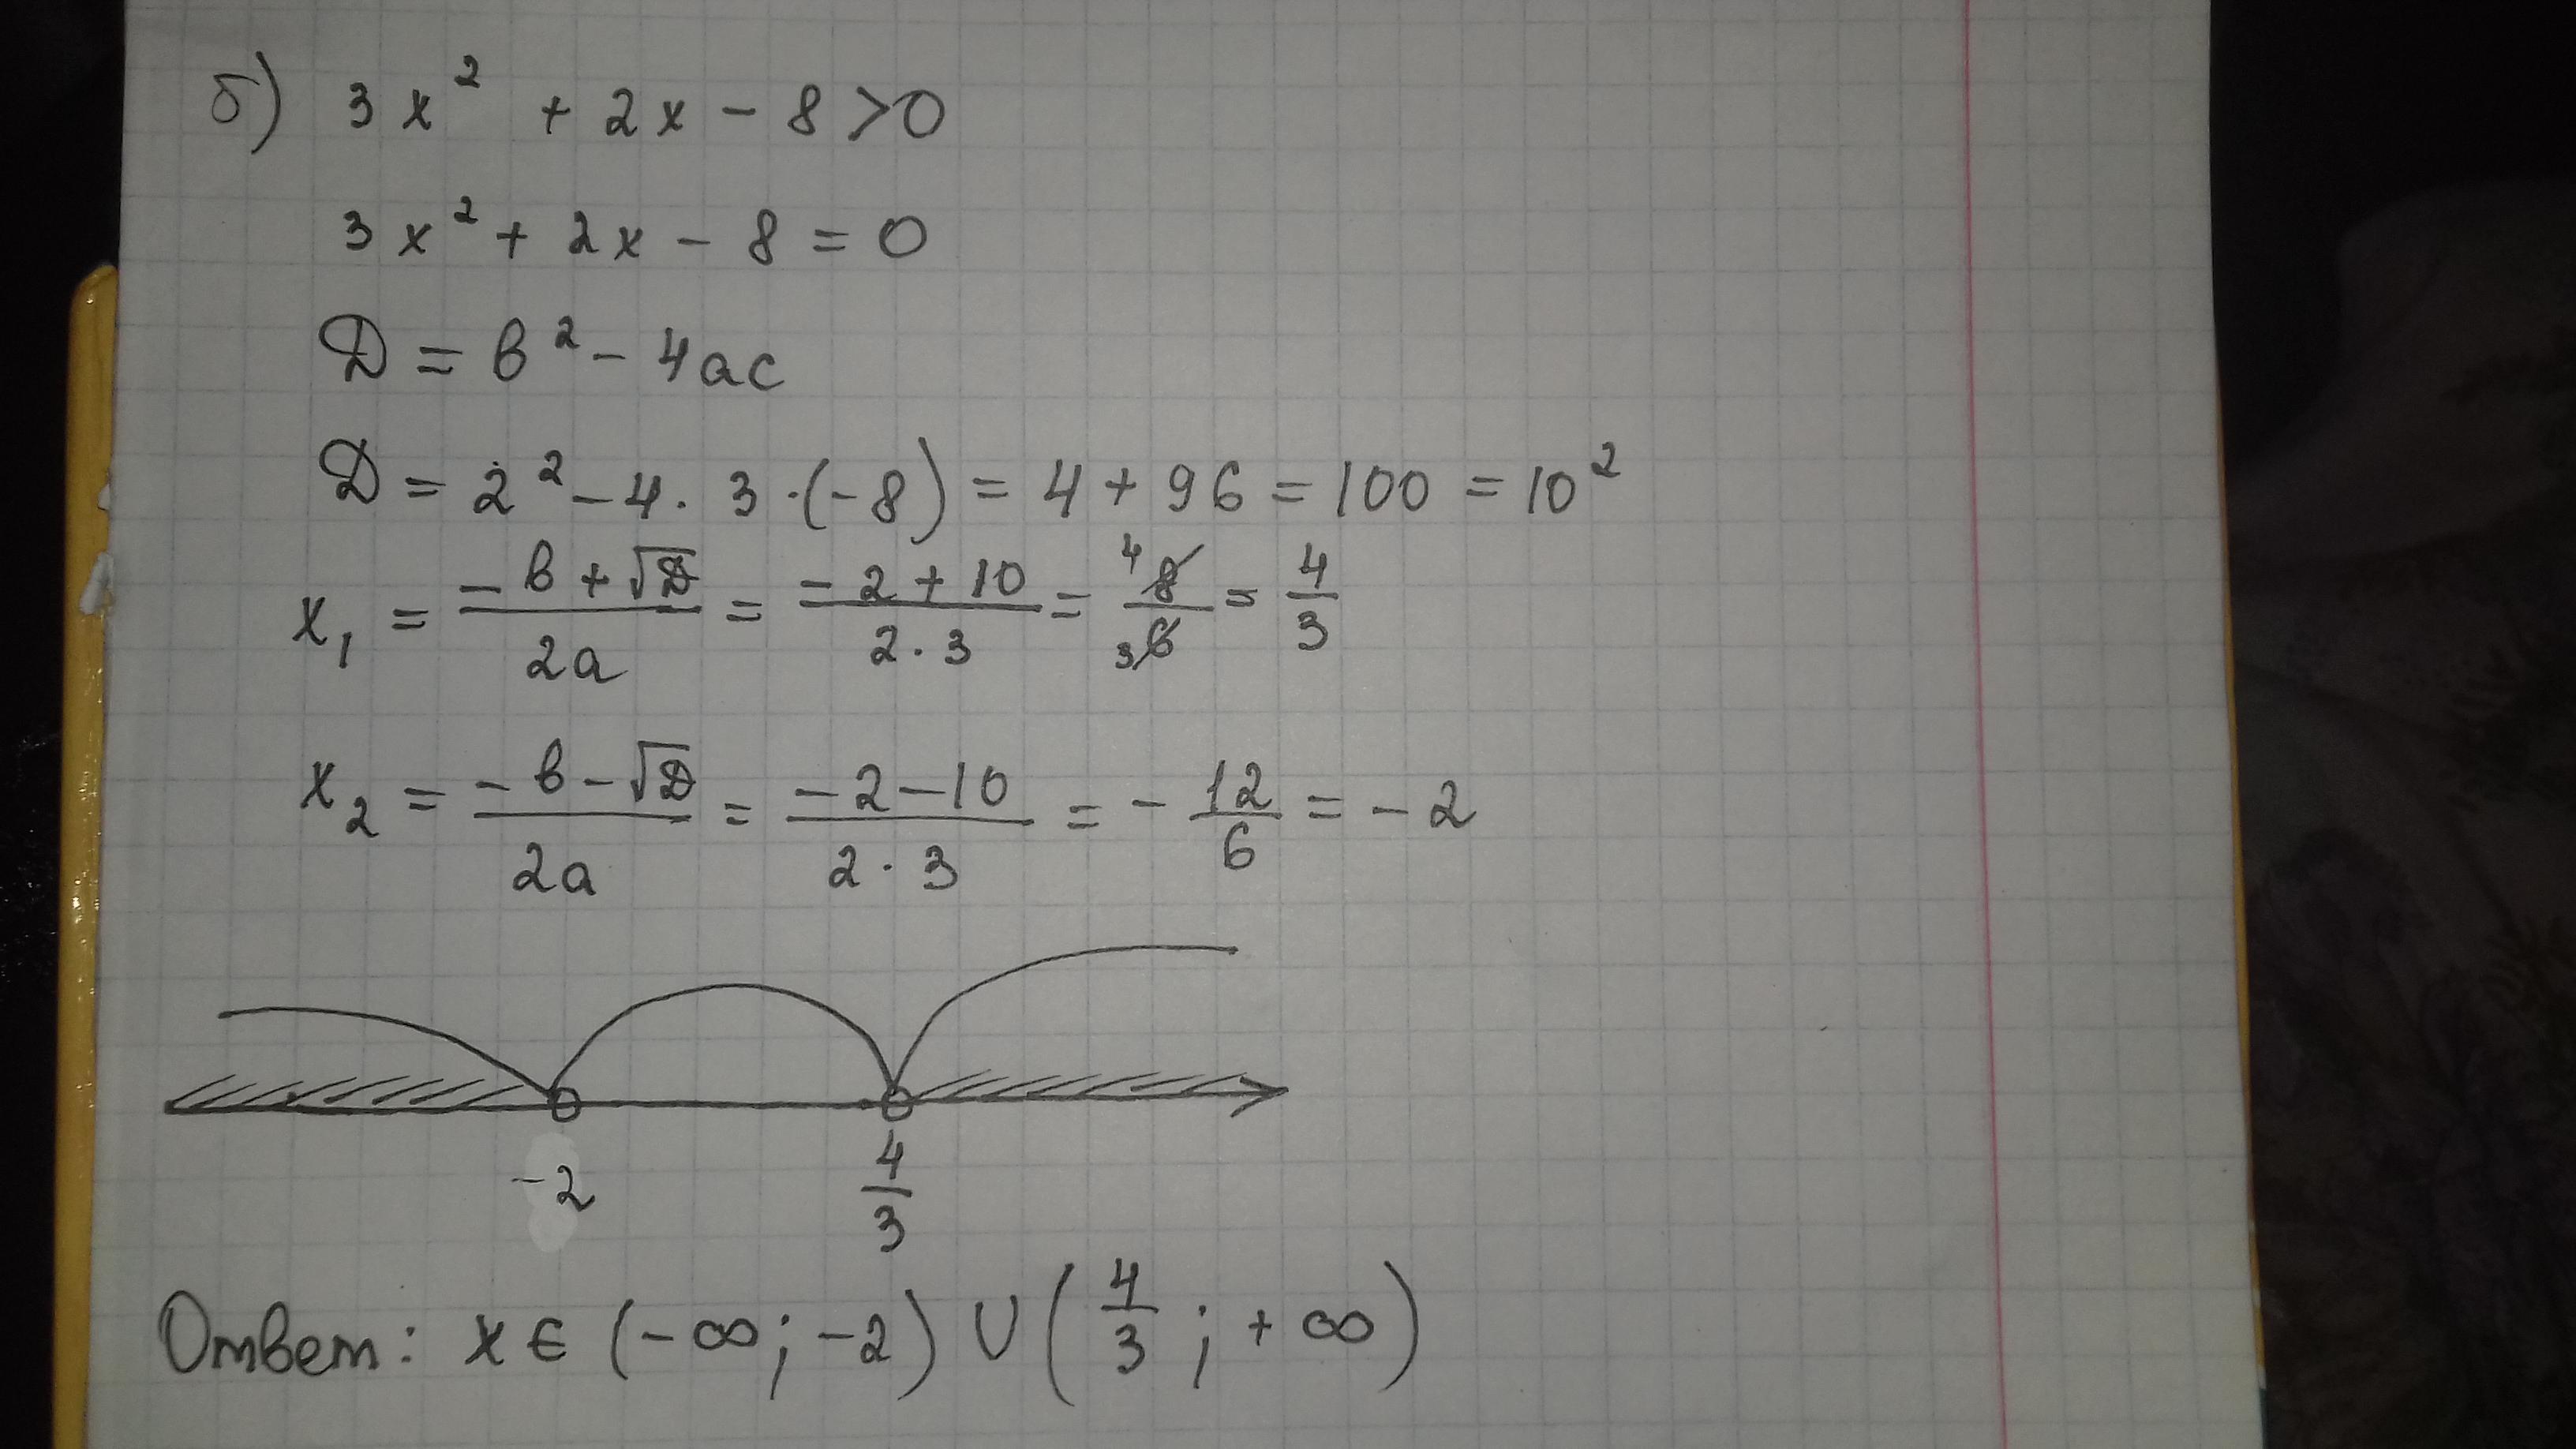 б) 3x² + 2x - 8 > 0
3x² + 2x - 8 = 0
D = b² - 4ac
D = 2² - 4 · 3 · (-8) = 4 + 96 = 100 = 10²
x₁ = (-b + √D)/(2a) = (-2 + 10)/(2 · 3) = ⁴8/₃6 = 4/3
x₂ = (-b - √D)/(2a) = (-2 - 10)/(2 · 3) = - 12/6 = - 2
-2 4/3
Ответ: x ∈ (-∞; -2) ∪ (4/3; +∞)